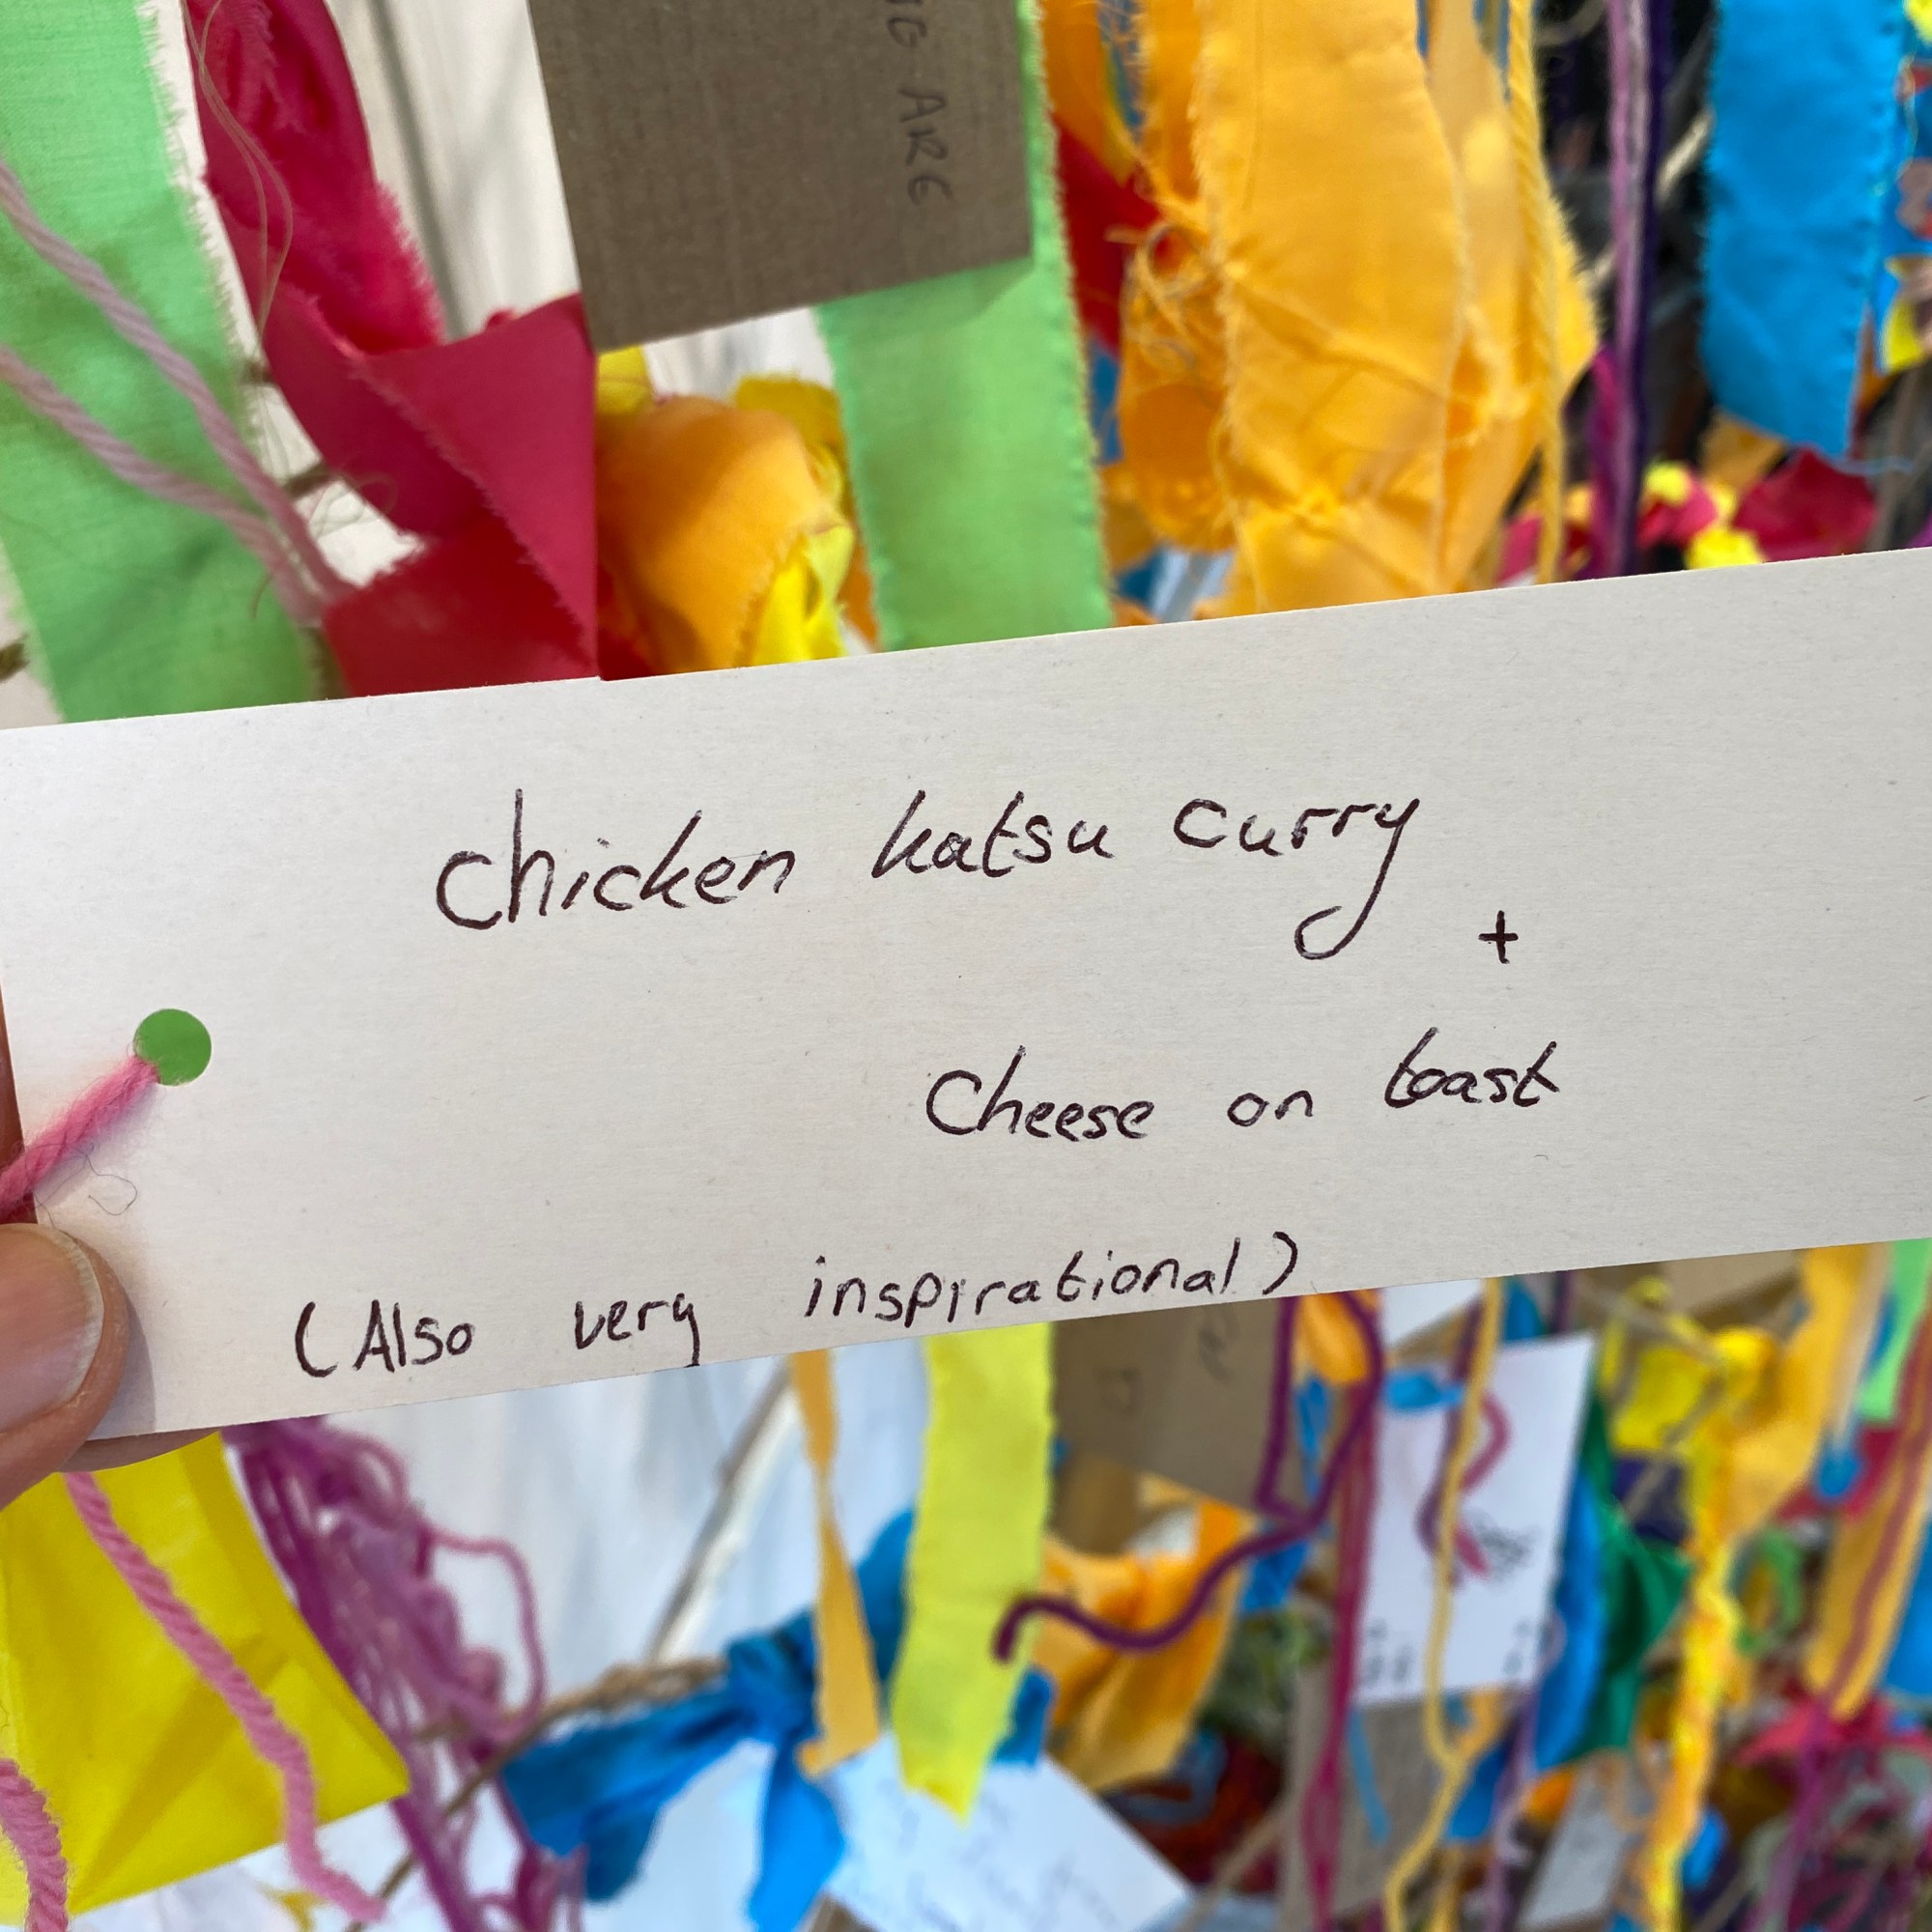 ARE
chicken katsu curry
+
Cheese on toast
(Also very inspirational)